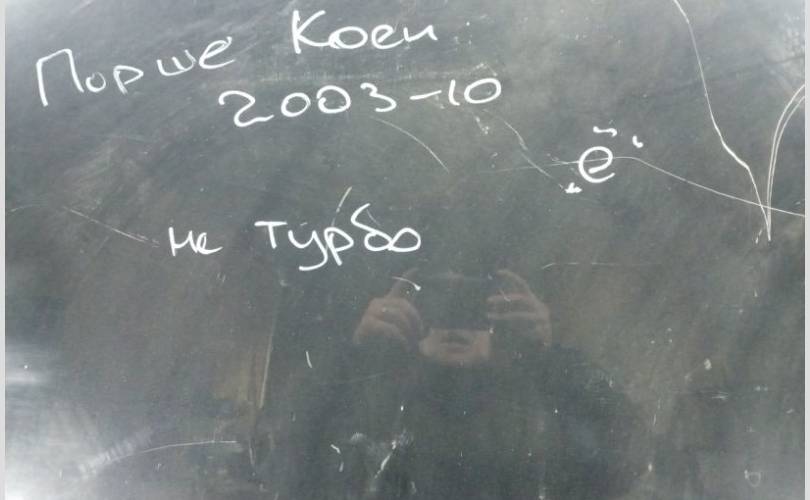 Порше Коен
2003-10
"ё"
не турбо